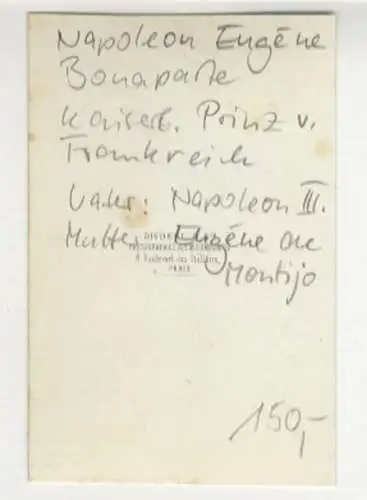 Napoleon Eugène
Bonaparte
Kaiserl. Prinz v.
Frankreich
Vater: Napoleon III.
Mutter: Eugène de
Montijo
8, Boulevart des Italiens,
PARIS
150,-